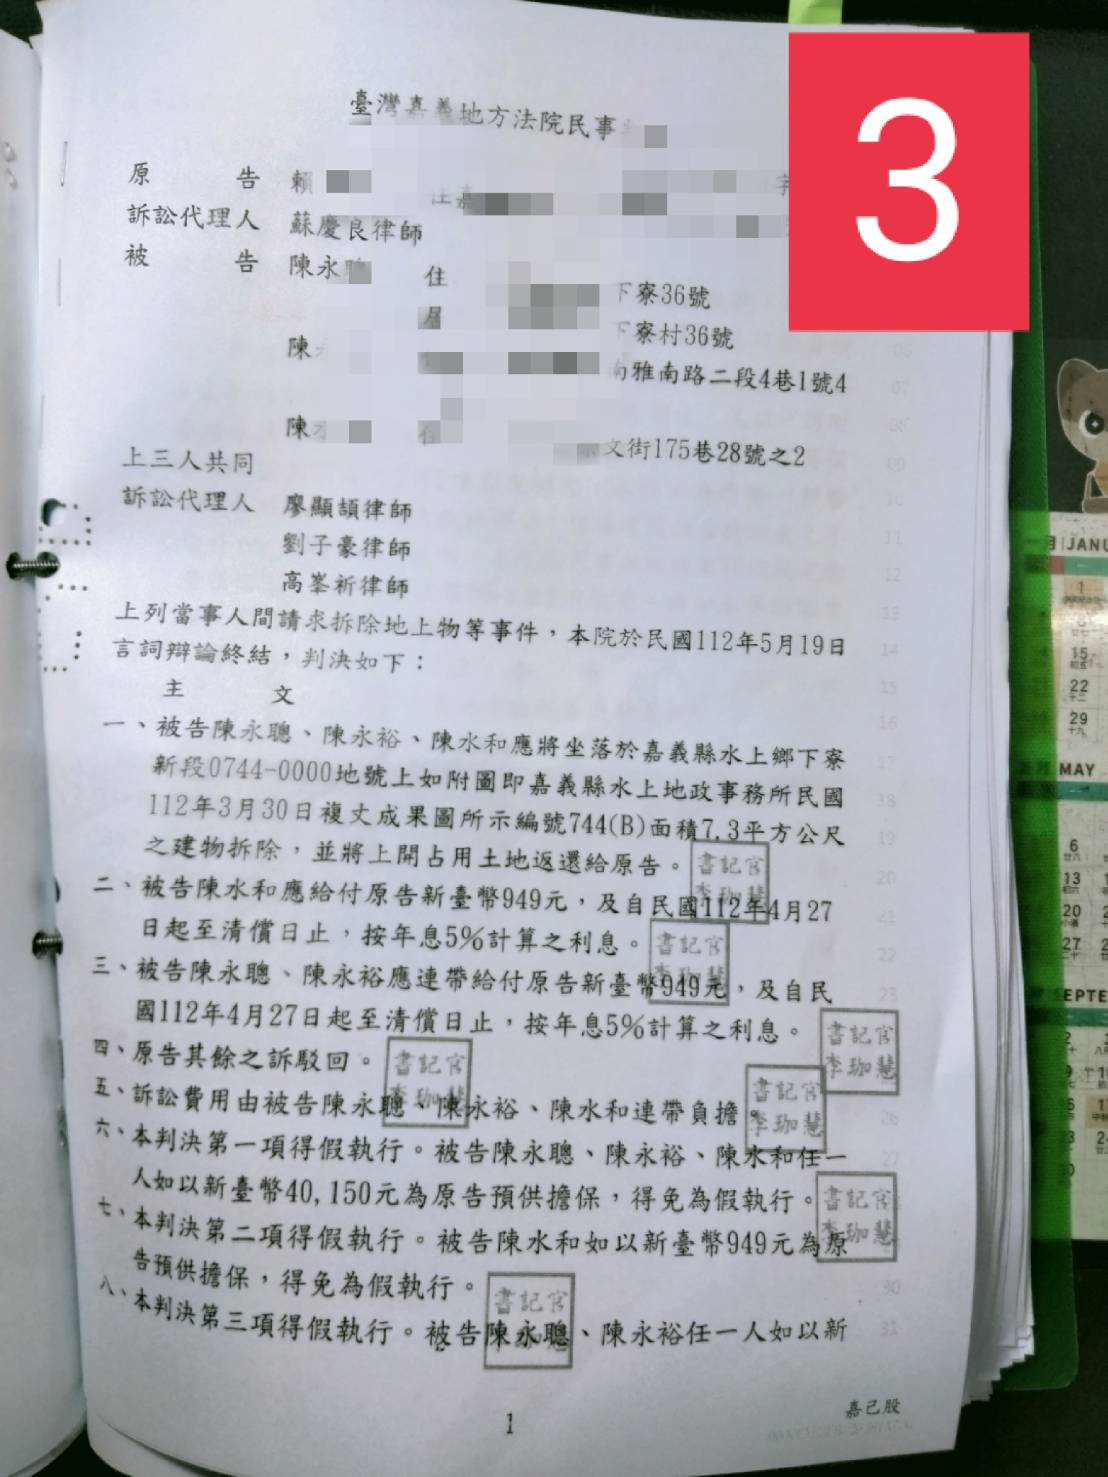 3
臺灣嘉義地方法院民事
原 告 賴 住嘉 字
訴訟代理人 蘇慶良律師
被 告 陳永聰 住 下寮36號
居 下寮村36號
陳永 南雅南路二段4巷1號4
陳水 住 文街175巷28號之2
上三人共同
訴訟代理人 廖顯頡律師
劉子豪律師
高峯祈律師
上列當事人間請求拆除地上物等事件，本院於民國112年5月19日
言詞辯論終結，判決如下：
主 文
一、被告陳永聰、陳永裕、陳水和應將坐落於嘉義縣水上鄉下寮
新段0744-0000地號上如附圖即嘉義縣水上地政事務所民國
112年3月30日複丈成果圖所示編號744(B)面積7.3平方公尺
之建物拆除，並將上開占用土地返還給原告。
二、被告陳水和應給付原告新臺幣949元，及自民國112年4月27
日起至清償日止，按年息5%計算之利息。
三、被告陳永聰、陳永裕應連帶給付原告新臺幣949元，及自民
國112年4月27日起至清償日止，按年息5%計算之利息。
四、原告其餘之訴駁回。
五、訴訟費用由被告陳永聰、陳永裕、陳水和連帶負擔
六、本判決第一項得假執行。被告陳永聰、陳永裕、陳水和任一
人如以新臺幣40,150元為原告預供擔保，得免為假執行。
七、本判決第二項得假執行。被告陳水和如以新臺幣949元為原
告預供擔保，得免為假執行。
八、本判決第三項得假執行。被告陳永聰、陳永裕任一人如以新
書記官
李珈慧
書記官
李珈慧
書記官
李珈慧
書記官
李珈慧
書記官
李珈慧
書記官
李珈慧
書記官
1
嘉己股
JANU
1
15
22
29
MAY
6
13
20
27
SEPTE